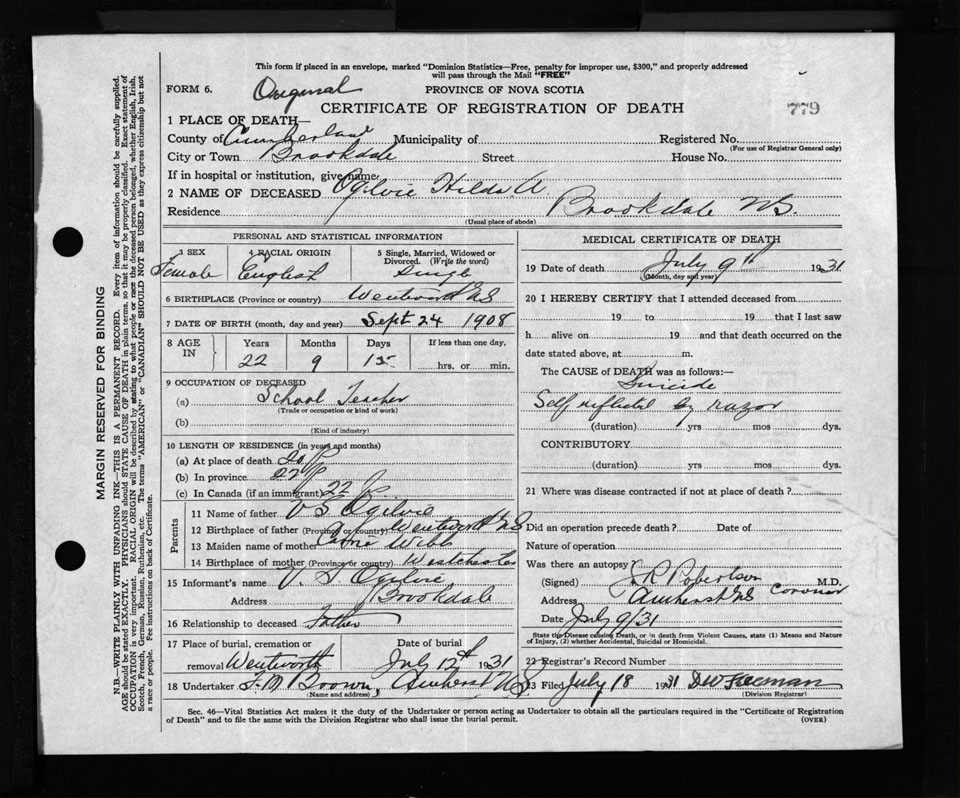 This form if placed in an envelope, marked "Dominion Statistics—Free, penalty for improper use, $300," and properly addressed
will pass through the Mail "FREE"
FORM 6. Original PROVINCE OF NOVA SCOTIA
CERTIFICATE OF REGISTRATION OF DEATH 779
1 PLACE OF DEATH—
County of Cumberland Municipality of Registered No.
(For use of Registrar General only)
City or Town Brookdale Street House No.
If in hospital or institution, give name
2 NAME OF DECEASED Ogilvie Hilda A.
Residence Brookdale N.S.
(Usual place of abode)
PERSONAL AND STATISTICAL INFORMATION
3 SEX 4 RACIAL ORIGIN 5 Single, Married, Widowed or
Divorced. (Write the word)
Female English Single
6 BIRTHPLACE (Province or country) Wentworth NS
7 DATE OF BIRTH (month, day and year) Sept 24 1908
8 AGE IN Years Months Days If less than one day,
22 9 15 hrs. or min.
9 OCCUPATION OF DECEASED
(a) School Teacher
(Trade or occupation or kind of work)
(b)
(Kind of industry)
10 LENGTH OF RESIDENCE (in years and months)
(a) At place of death 20
(b) In province 22
(c) In Canada (if an immigrant) 22
Parents
11 Name of father V S Ogilvie
12 Birthplace of father (Province or country) Wentworth NS
13 Maiden name of mother Webb
14 Birthplace of mother (Province or country)
15 Informant's name V. S Ogilvie
Address Brookdale
16 Relationship to deceased Father
17 Place of burial, cremation or Date of burial
removal Wentworth July 12th 1931
18 Undertaker F. M Brown, Amherst NS
(Name and address)
MEDICAL CERTIFICATE OF DEATH
19 Date of death July 9th 1931
(Month, day and year)
20 I HEREBY CERTIFY that I attended deceased from
19 to 19 that I last saw
h alive on 19 and that death occurred on the
date stated above, at m.
The CAUSE of DEATH was as follows:
Suicide
Self inflicted by razor
(duration) yrs mos dys.
CONTRIBUTORY
(duration) yrs mos dys.
21 Where was disease contracted if not at place of death?
Did an operation precede death? Date of
Nature of operation
Was there an autopsy
(Signed) J. R Robertson M.D.
Address Amherst NS Coroner
Date July 9/31
State the Disease causing Death, or in death from Violent Causes, state (1) Means and Nature
of Injury, (2) whether Accidental, Suicidal or Homicidal.
22 Registrar's Record Number
23 Filed July 18 1931 DW Freeman
(Division Registrar)
Sec. 46—Vital Statistics Act makes it the duty of the Undertaker or person acting as Undertaker to obtain all the particulars required in the "Certificate of Registration
of Death" and to file the same with the Division Registrar who shall issue the burial permit. (OVER)
MARGIN RESERVED FOR BINDING
N.B.—WRITE PLAINLY WITH UNFADING INK—THIS IS A PERMANENT RECORD. Every item of information should be carefully supplied.
AGE should be stated EXACTLY. PHYSICIANS should STATE CAUSE OF DEATH in plain terms, so that it may be properly classified. Exact statement of
OCCUPATION is very important. RACIAL ORIGIN will be described by stating to what people or race the deceased person belonged, whether English, Irish,
Scotch, French, German, Russian, Ruthenian, etc. The terms "AMERICAN" or "CANADIAN" SHOULD NOT BE USED as they express citizenship but not
a race or people. Fee instructions on back of Certificate.